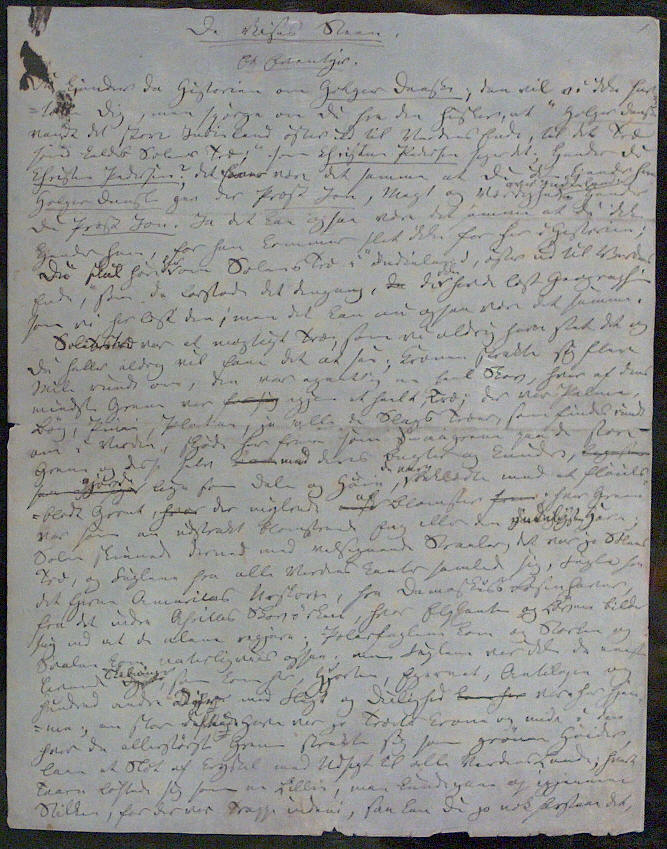 De Vises Steen.
Et Eventyr.
Du kjender da Historien om Holger Danske; den vil vi ikke for-
tælle Dig, men spørge om Du fra den husker, at "Holger Danske
vandt det store Indieland øster ud til Verdens Ende, til det Træ
som kaldes Solens Træ," som Christen Pedersen siger det; kjender Du
Christen Pedersen? det kan være det samme at Du ikke kjender ham
Holger Danske gav der Præst Jon, Magt og Værdighed over Indieland, kjender
Du Præst Jon. Ja det kan ogsaa være det samme at Du ikke
kjender ham, for han kommer slet ikke for her i Historien;
Du skal høre om Solens Træ "i Indieland, øster ud til Verdens
Ende", som de forstode det dengang, de der havde læst Geographi
som vi har læst den; men det kan nu ogsaa være det samme.
Solens Træ var et mægtigt Træ, som vi aldrig have seet det og
Du heller aldrig vil faae det at see; Kronen strakte sig flere
Mile rundt om, den var egentlig en heel Skov, hver af dens
mindste Grene var igjen et heelt Træ; der var Palmer,
Bøg, Pinier, Plataner, ja alle de Slags Træer, som findes rundt
om i Verden, skjøde her frem som Smaagrene paa de store
Grene og disse selv med deres Bugter og Knuder,
lige som Dale og Høie, de vare klædte med et fløiels-
blødt Grønt, der vrimlede af Blomster; hver Green
var som en udstrakt blomstrende Eng eller den yndigste Have;
Solen skinnede derned med velsignende Straaler, det var jo Solens
Træ, og Fuglene fra alle Verdens Kanter samlede sig, Fugle fra
det fjerne Amerikas Urskove, fra Damaskus Rosenhaver,
fra det indre Afrikas Skovørken, hvor Elephanten og Løven bilder
sig ind at de alene regjere; Polarfuglene kom og Storken og
Svalen kom naturligviis ogsaa; men Fuglene var ikke de eneste
levende Skabninger, som kom her, Hjorten, Egernet, Antilopen og
hundrede andre Dyr med Flugt og Deilighed var her hjem-
me; en stor duftende Have var jo Træets Krone og inde i den
hvor de allerstørste Grene strakte sig som grønne Høider,
laae et Slot af Crystal med Udsigt til alle Verdens Lande; hvert
Taarn løftede sig som en Lillie, man kunde gaae op igjennem
Stilken, for der var Trappe indeni, saa kan Du jo nok forstaae det,